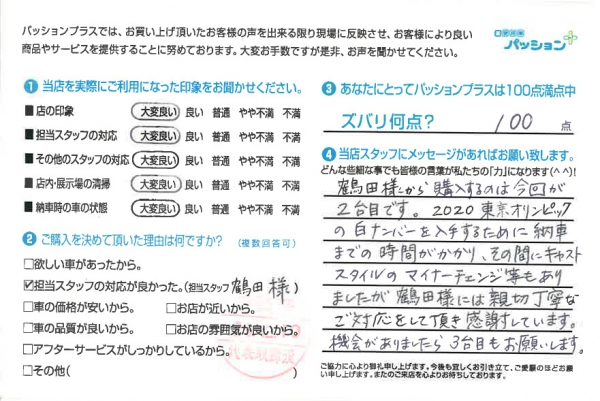 パッションプラスでは、お買い上げ頂いたお客様の声を出来る限り現場に反映させ、お客様により良い
商品やサービスを提供することに努めております。大変お手数ですが是非、お声を聞かせてください。
パッション
❶ 当店を実際にご利用になった印象をお聞かせください。
■店の印象 大変良い 良い 普通 やや不満 不満
■担当スタッフの対応 大変良い 良い 普通 やや不満 不満
■その他のスタッフの対応 大変良い 良い 普通 やや不満 不満
■店内・展示場の清掃 大変良い 良い 普通 やや不満 不満
■納車時の車の状態 大変良い 良い 普通 やや不満 不満
❷ ご購入を決めて頂いた理由は何ですか？ (複数回答可)
□欲しい車があったから。
☑担当スタッフの対応が良かった。(担当スタッフ 鶴田様)
□車の価格が安いから。 □お店が近いから。
□車の品質が良いから。 □お店の雰囲気が良いから。
□アフターサービスがしっかりしているから。
□その他( )
❸ あなたにとってパッションプラスは100点満点中
ズバリ何点？ 100 点
❹ 当店スタッフにメッセージがあればお願い致します。
どんな些細な事でも皆様の言葉が私たちの「力」になります(^^)!
鶴田様から購入するのは今回が
2台目です。2020東京オリンピック
の白ナンバーを入手するために納車
までの時間がかかり、その間にキャスト
スタイルのマイナーチェンジ等もあり
ましたが鶴田様には親切丁寧な
ご対応をして頂き感謝しています。
機会がありましたら3台目もお願いします。
ご協力に心より御礼申し上げます。今後も宜しくお引き立て、ご愛顧のほどお願
い申し上げます。またのご来店を心よりお待ちしております。